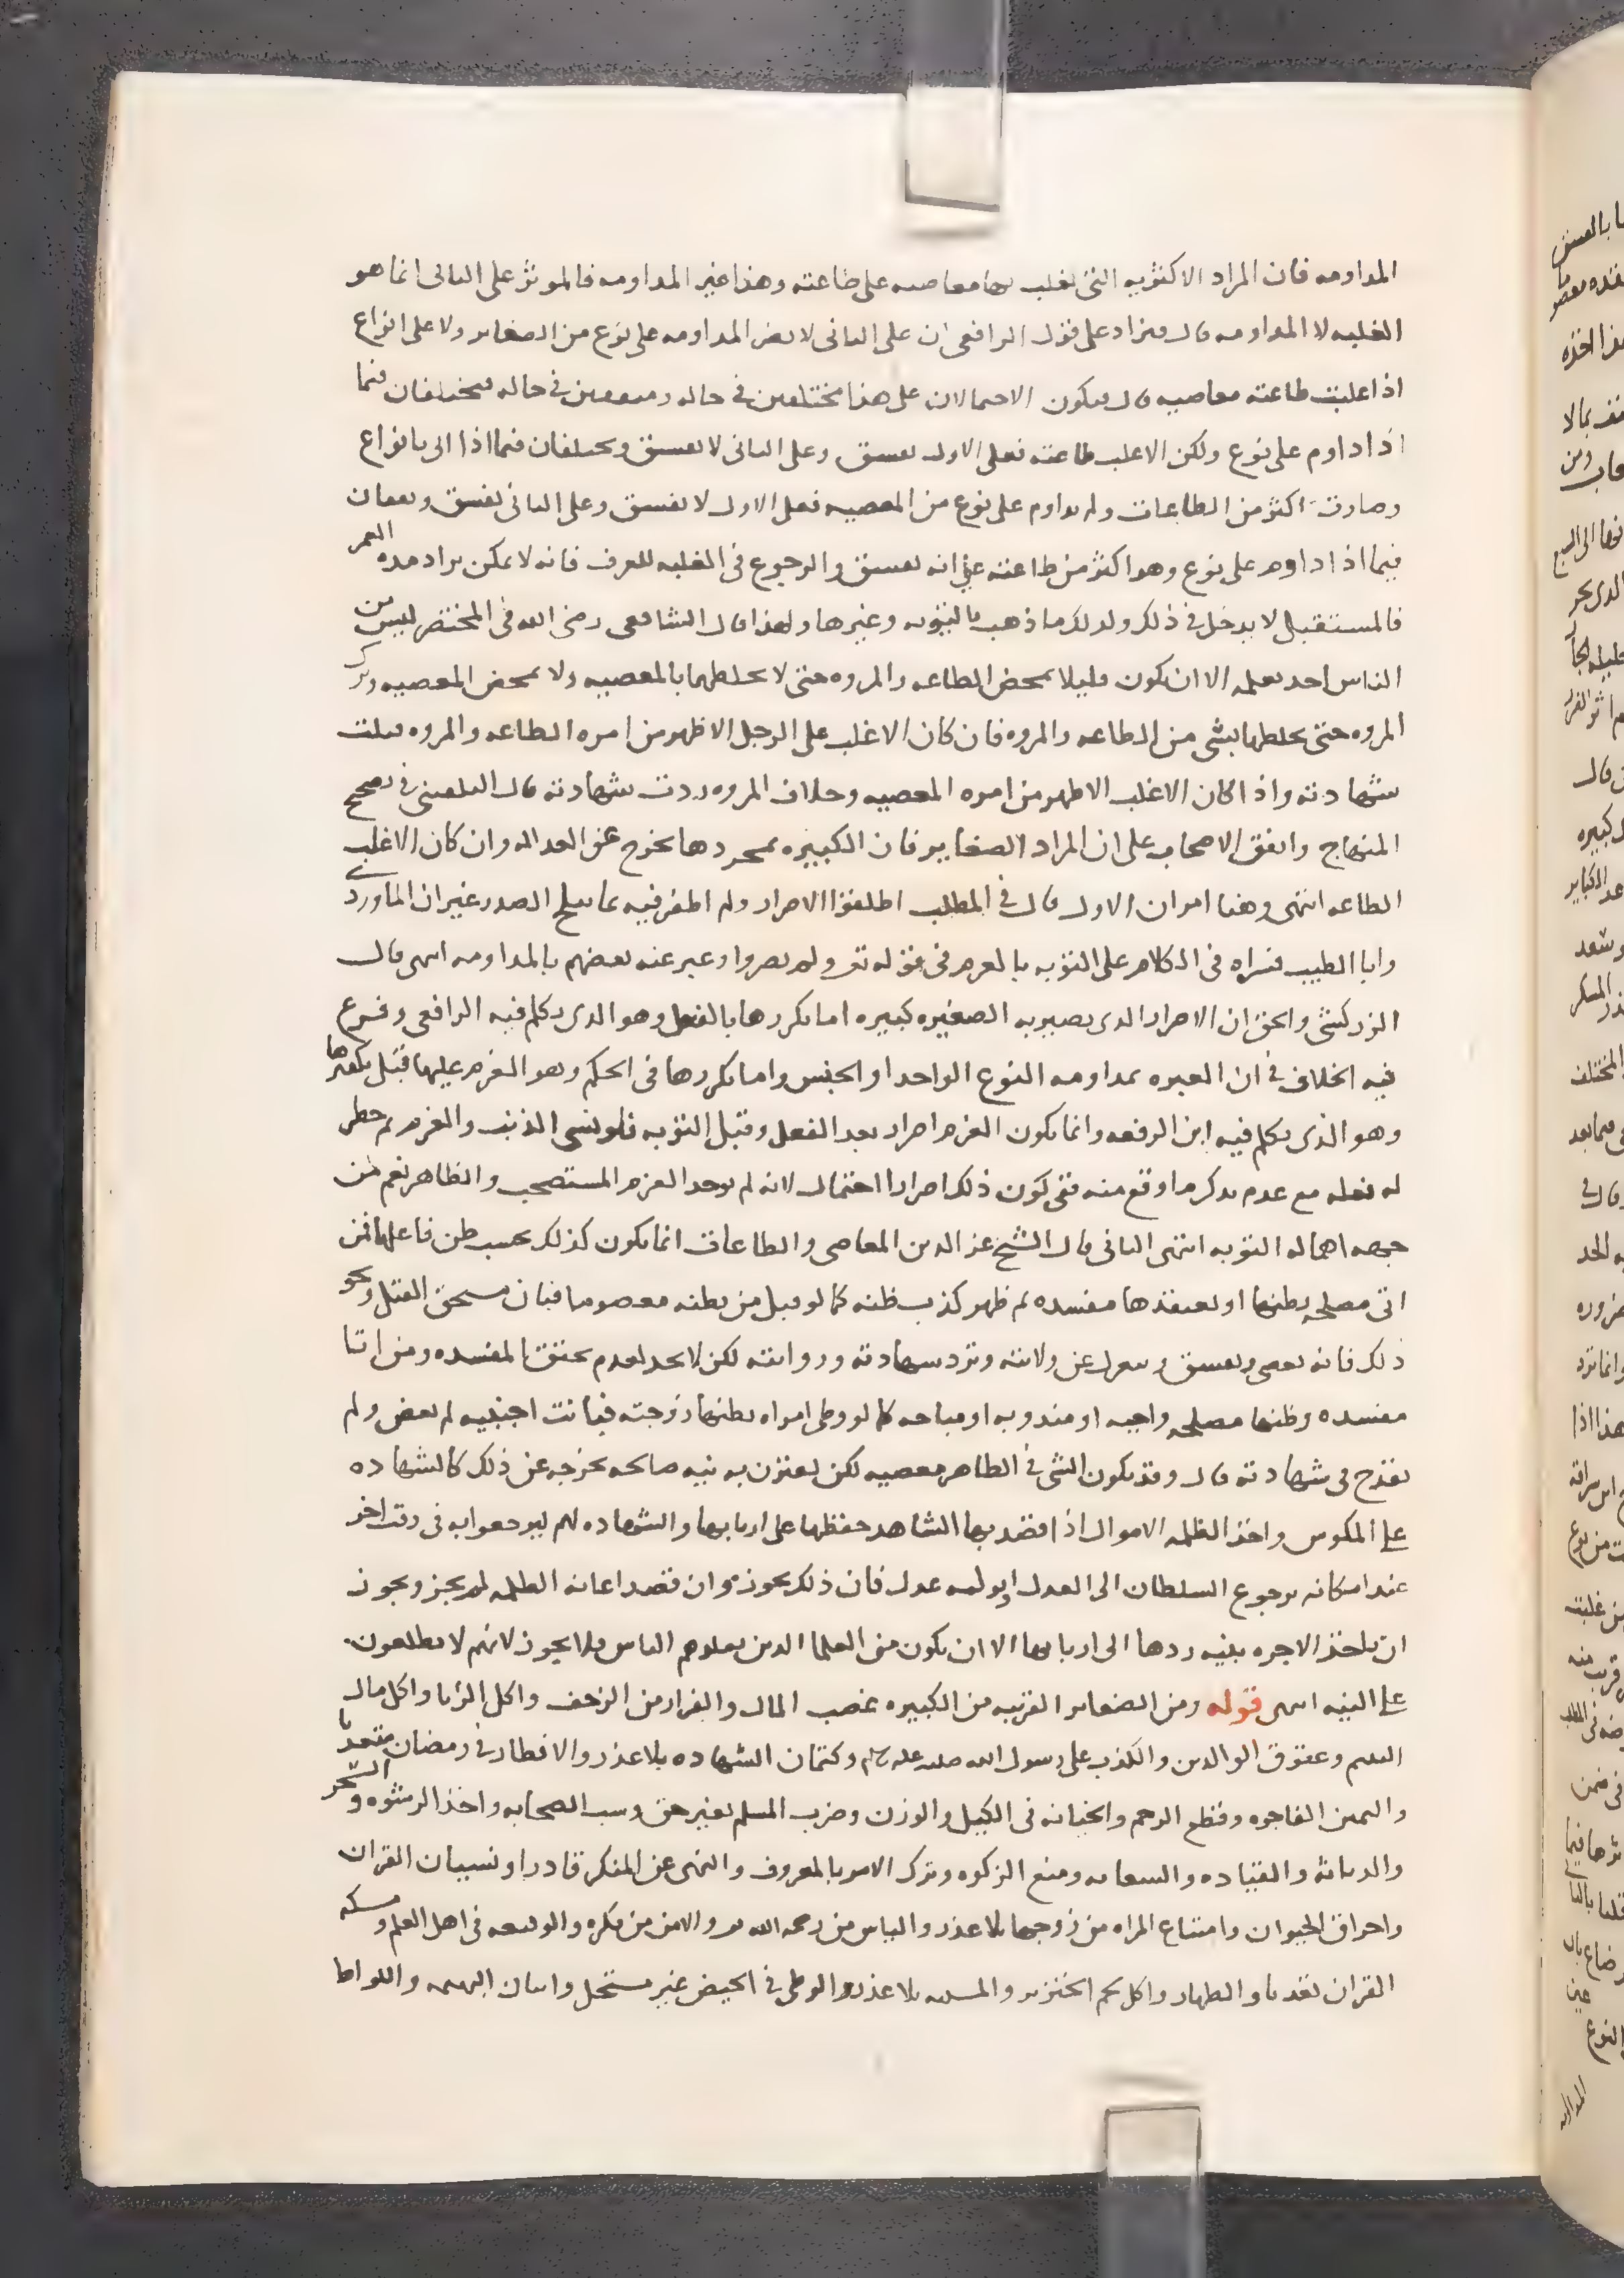 المداومه فان المراد الاكثريه التى تغلب بها معاصيه على طاعته وهذا غير المداومه فالموثر على الثانى انما هو
الغلبه لا المداومه قال فيزاد على قول الرافعى ان على الثانى لا يضر المداومه على نوع من الصغاير ولا على انواع
اذا غلبت طاعته معاصيه قال فيكون الاحتمالان على هذا مختلفين فى حاله ومتفقين فى حاله فيختلفان فيما
اذا داوم على نوع ولكن الاغلب طاعته فعلى الاول يفسق وعلى الثانى لا يفسق ويختلفان فيما اذا اتى بانواع
وصارت اكثر من الطاعات ولم يداوم على نوع من المعصيه فعلى الاول لا يفسق وعلى الثانى يفسق ويتفقان
فيما اذا داوم على نوع وهو اكثر من طاعته على انه يفسق والرجوع فى الغلبه للعرف فانه لا يمكن يراد مده العمر
فالمستقبل لا يدخل فى ذلك ولذلك ما ذهب بالتوبه وغيرها ولهذا قال الشافعى رضى الله فى المختصر ليس من
الناس احد نعلمه الا ان يكون قليلا يمحض الطاعه والمروه حتى لا يخلطهما بالمعصيه ولا يمحض المعصيه وترك
المروه حتى يخلطها بشى من الطاعه والمروه فان كان الاغلب على الرجل الاظهر من امره الطاعه والمروه قبلت
شهادته واذا كان الاغلب الاظهر من امره المعصيه وخلاف المروه ردت شهادته قال البلقينى فى تصحيح
المنهاج واتفق الاصحاب على ان المراد الصغاير فان الكبيره بمجردها تخرج عن العداله وان كان الاغلب
الطاعه انتهى وهنا امران الاول قال فى المطلب اطلقوا الاصرار ولم اظفر فيه بما يثلج الصدر غير ان الماوردى
وابا الطيب فسراه فى الكلام على التوبه بالعزم فى قوله تعالى ولم يصروا وعبر عنه بعضهم بالمداومه انتهى قال
الزركشى والحق ان الاصرار الذى يصير به الصغيره كبيره اما تكررها بالفعل وهو الذى تكلم فيه الرافعى وفرع
فيه الخلاف فى ان العبره بمداومه النوع الواحد او الجنس واما تكررها فى الحكم وهو العزم عليها قبل تكفيرها
وهو الذى تكلم فيه ابن الرفعه وانما يكون العزم اصرار بعد الفعل وقبل التوبه فلو نسى الذنب والعزم ثم خطر
له فعله مع عدم تذكر ما وقع منه ففى كون ذلك اصرارا احتمال لانه لم يوجد العزم المستصحب والظاهر نعم من
جهه اهماله التوبه انتهى الثانى قال الشيخ عز الدين المعاصى والطاعات انما يكون كذلك بحسب ظن فاعلها فمن
اتى مصلحه يظنها او يعتقدها مفسده ثم ظهر كذب ظنه كما لو قبل من يظنه معصوما فبان مستحق القتل ونحو
ذلك فانه يعصى ويفسق وينعزل عن ولايته وترد شهادته وروايته لكن لا يحد لعدم تحقق المفسده ومن اتا
مفسده وظنها مصلحه واجبه او مندوبه او مباحه كما لو وطى امراه يظنها زوجته فبانت اجنبيه لم يعص ولم
يقدح فى شهادته قال وقد يكون الشى فى الظاهر معصيه لكن يقترن به نيه صالحه تخرجه عن ذلك كالشهاده
على المكوس واخذ الظلمه الاموال اذا قصد بها الشاهد حفظها على اربابها والشهاده لهم ليرجعوا به فى وقت اخر
عند امكانه برجوع السلطان الى العدل او توليه عدل فان ذلك يجوز وان قصد اعانه الظلمه لم يجز ويجوز
ان ياخذ الاجره بنيه ردها الى اربابها الا ان يكون من العلما الذين يقلدهم الناس فلا يجوز لانهم لا يطلعون
على النيه انتهى قوله ومن الصغاير القريبه من الكبيره غصب المال والفرار من الزحف واكل الربا واكل مال
اليتيم وعقوق الوالدين والكذب على رسول الله صلى الله عليه وسلم وكتمان الشهاده بلا عذر والافطار فى رمضان متعديا
واليمين الفاجره وقطع الرحم والخيانه فى الكيل والوزن وضرب المسلم بغير حق وسب الصحابه واخذ الرشوه والسحر
والدياثه والقياده والسعايه ومنع الزكوه وترك الامر بالمعروف والنهى عن المنكر قادرا ونسيان القران
واحراق الحيوان وامتناع المراه من زوجها بلا عذر والياس من رحمه الله والامن من مكره والوقيعه فى اهل العلم
القران تقدما والظهار واكل لحم الخنزير والميته بلا عذر والوطى فى الحيض غير مستحل واتيان البهيمه واللواط